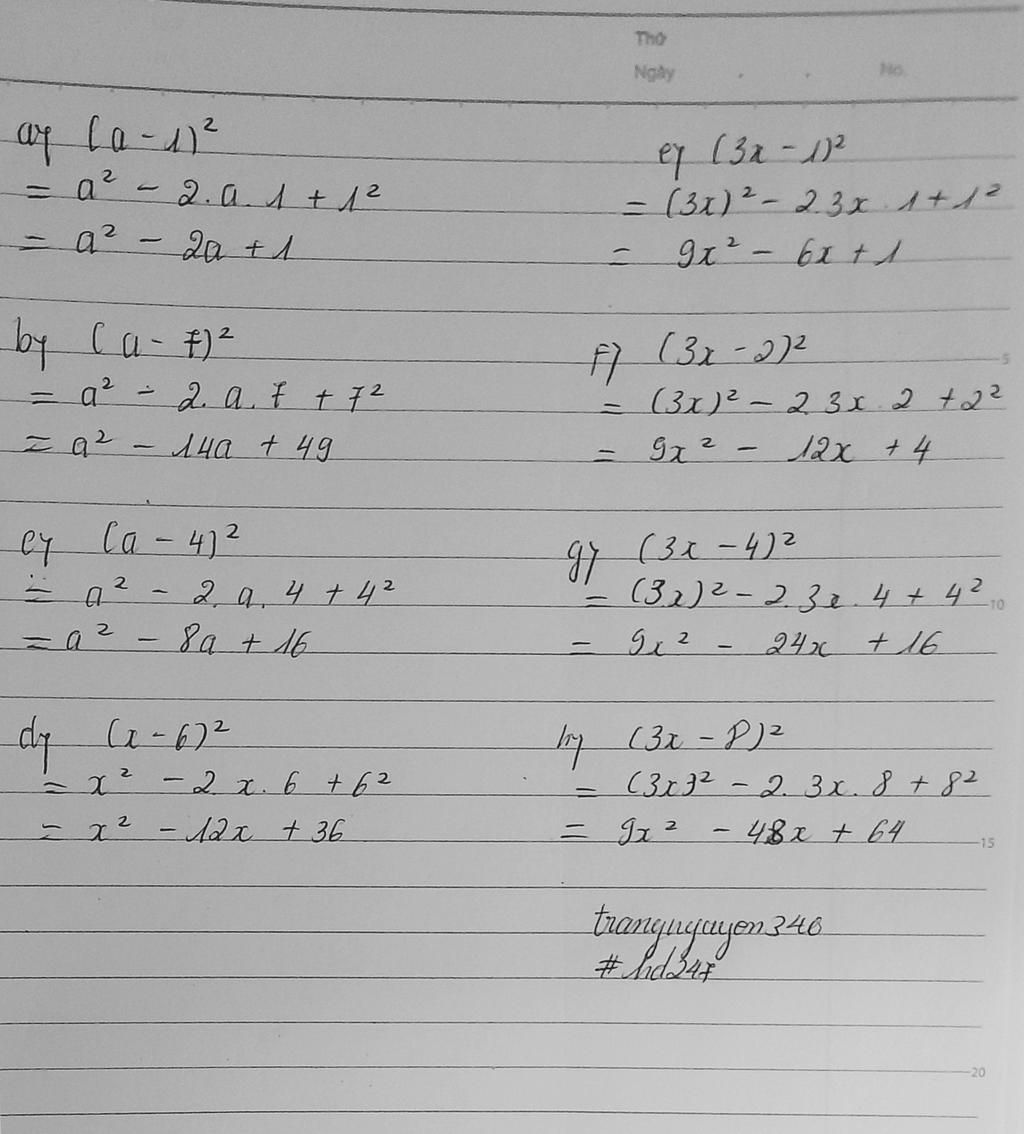 Thứ
Ngày . . No.
a) (a - 1)²
= a² - 2.a.1 + 1²
= a² - 2a + 1
b) (a - 7)²
= a² - 2.a.7 + 7²
= a² - 14a + 49
c) (a - 4)²
= a² - 2.a.4 + 4²
= a² - 8a + 16
d) (x - 6)²
= x² - 2.x.6 + 6²
= x² - 12x + 36
e) (3x - 1)²
= (3x)² - 2.3x.1 + 1²
= 9x² - 6x + 1
f) (3x - 2)²
= (3x)² - 2.3x.2 + 2²
= 9x² - 12x + 4
g) (3x - 4)²
= (3x)² - 2.3x.4 + 4²
= 9x² - 24x + 16
h) (3x - 8)²
= (3x)² - 2.3x.8 + 8²
= 9x² - 48x + 64
#hd347
5
10
15
20